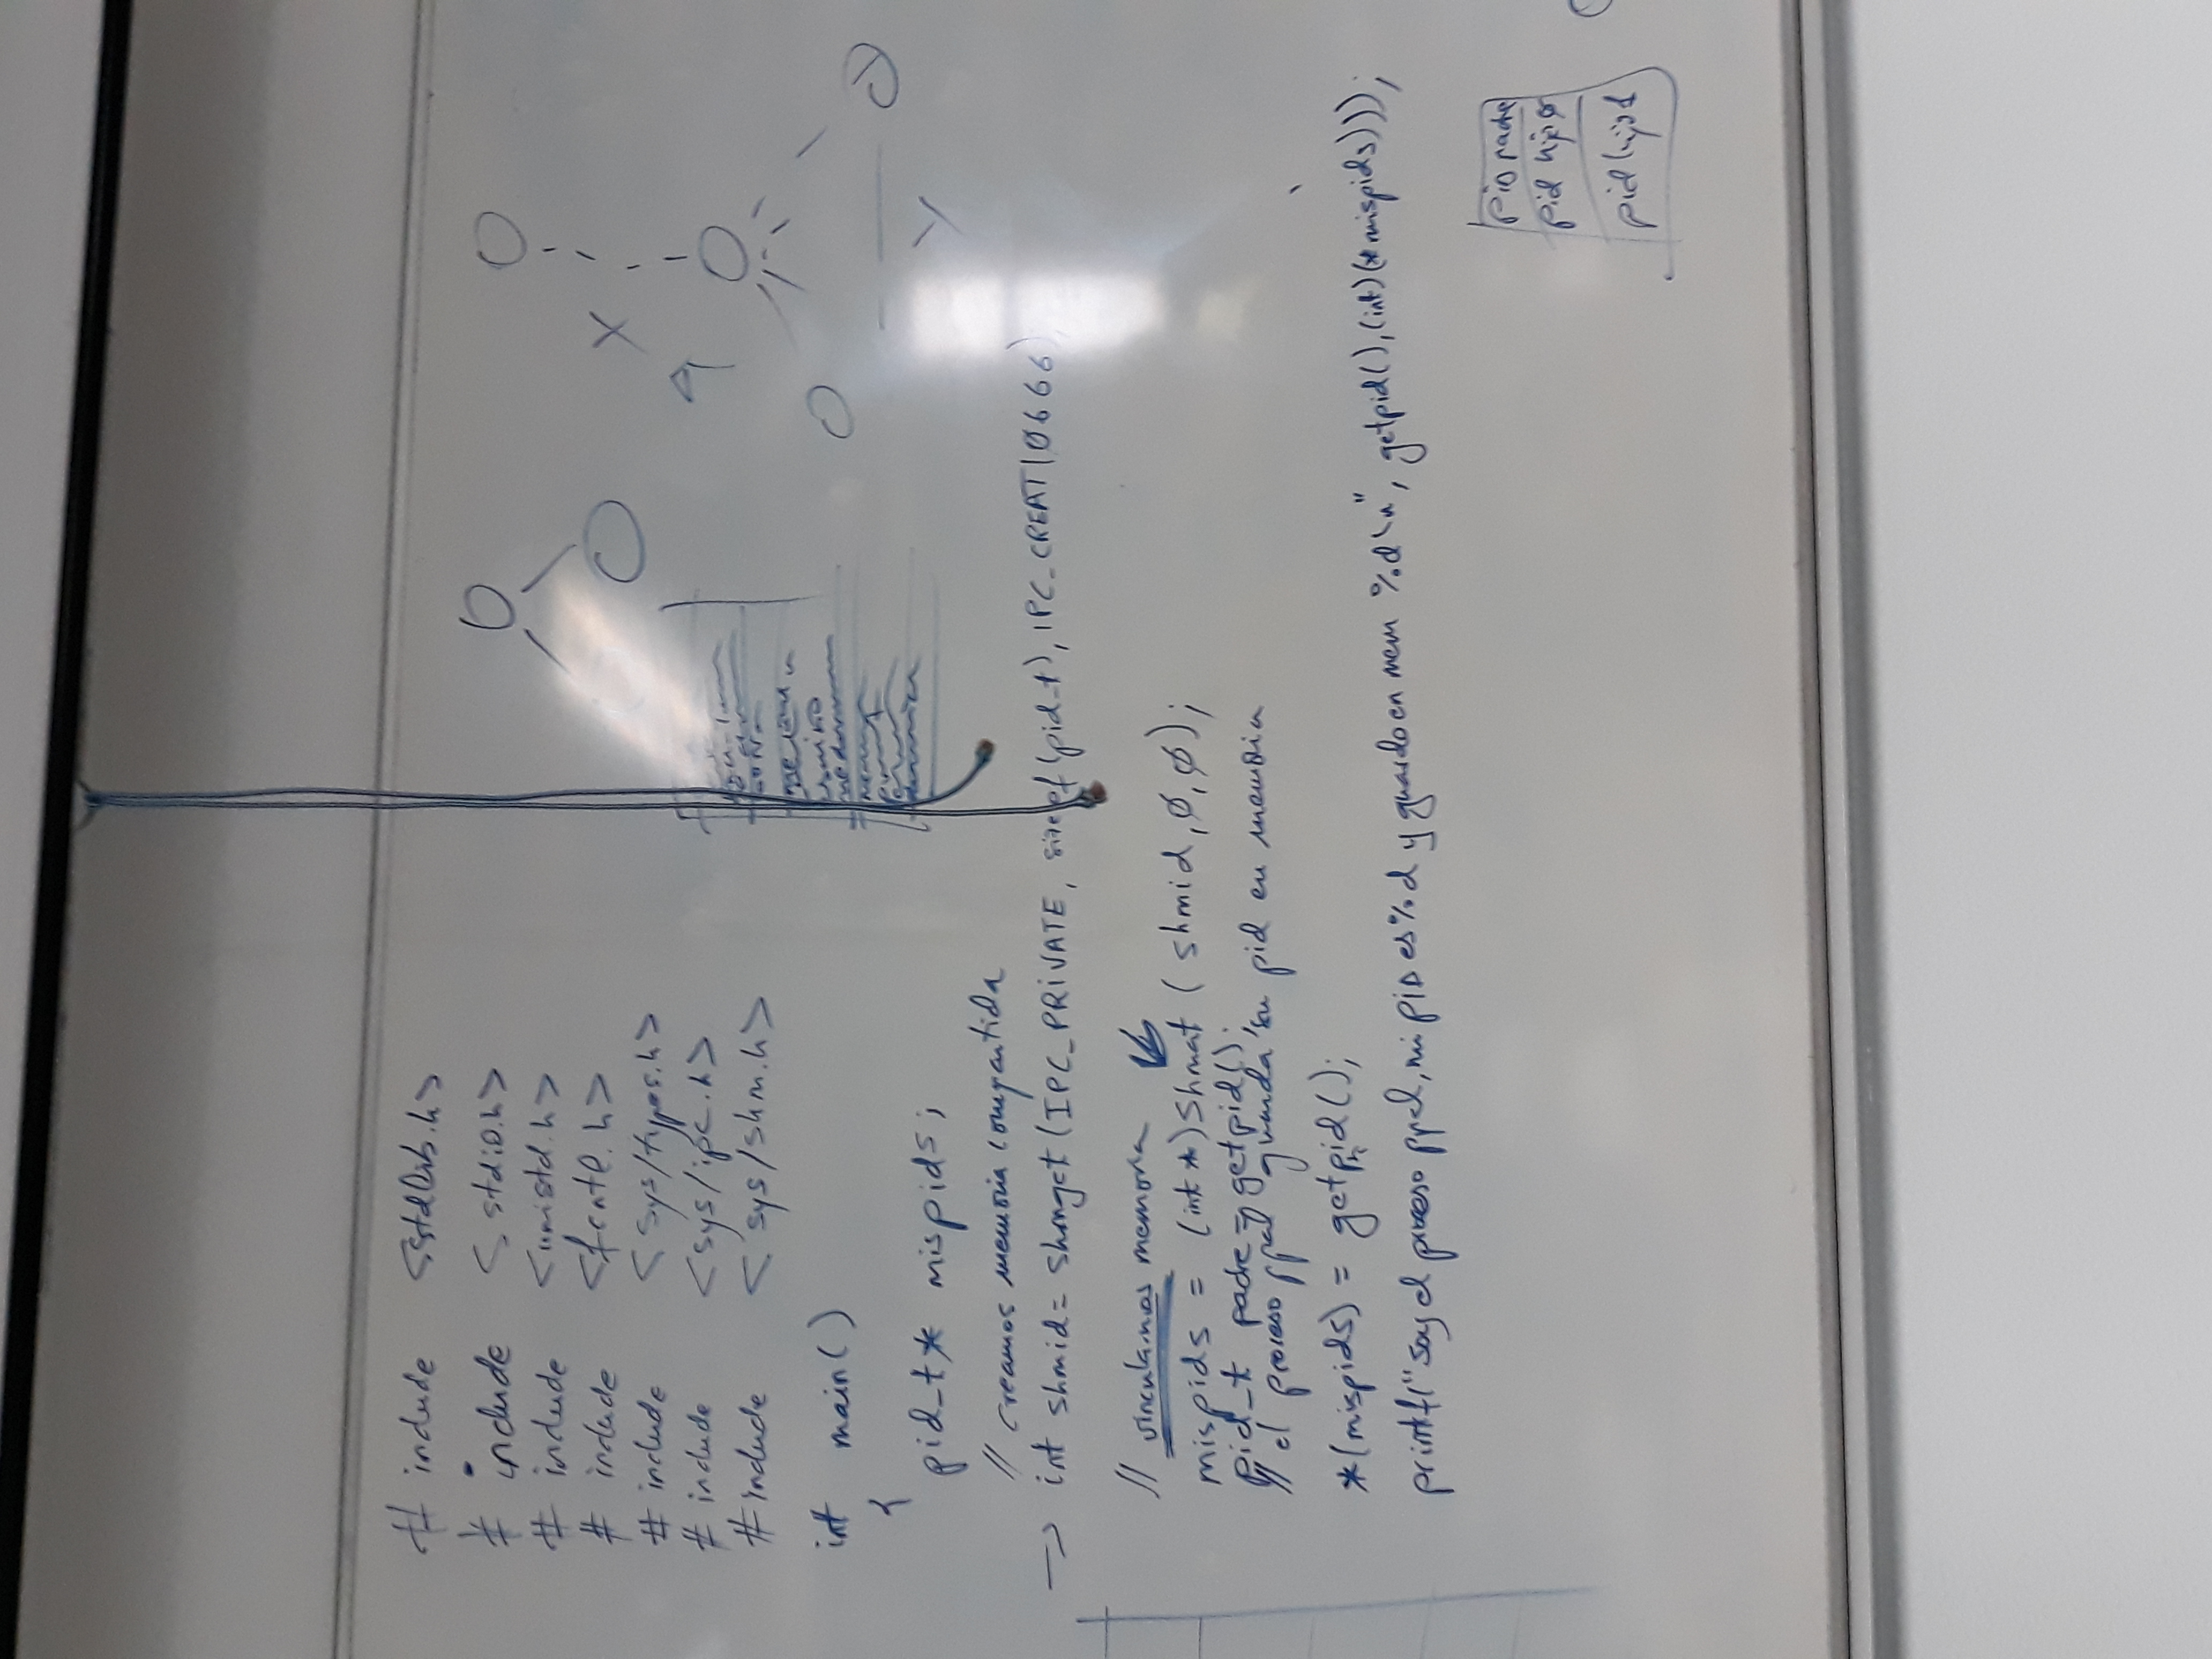 # include <stdlib.h>
# include <stdio.h>
# include <unistd.h>
# include <fcntl.h>
# include <sys/types.h>
# include <sys/ipc.h>
# include <sys/shm.h>
int main()
{
pid_t* mispids;
// creamos memoria compartida
-> int shmid = shmget(IPC_PRIVATE, sizeof(pid_t), IPC_CREAT|0666)
// vinculamos memoria
mispids = (int *)Shmat ( shmid,0,0);
pid_t padre = getpid();
// el proceso ppal guarda su pid en memoria
*(mispids) = getpid();
printf("soy el proceso ppal, mi PID es %d y guardo en mem %d\n", getpid(),(int)(*mispids)));
X
Y
PID padre
pid hijo 0
pid hijo 1